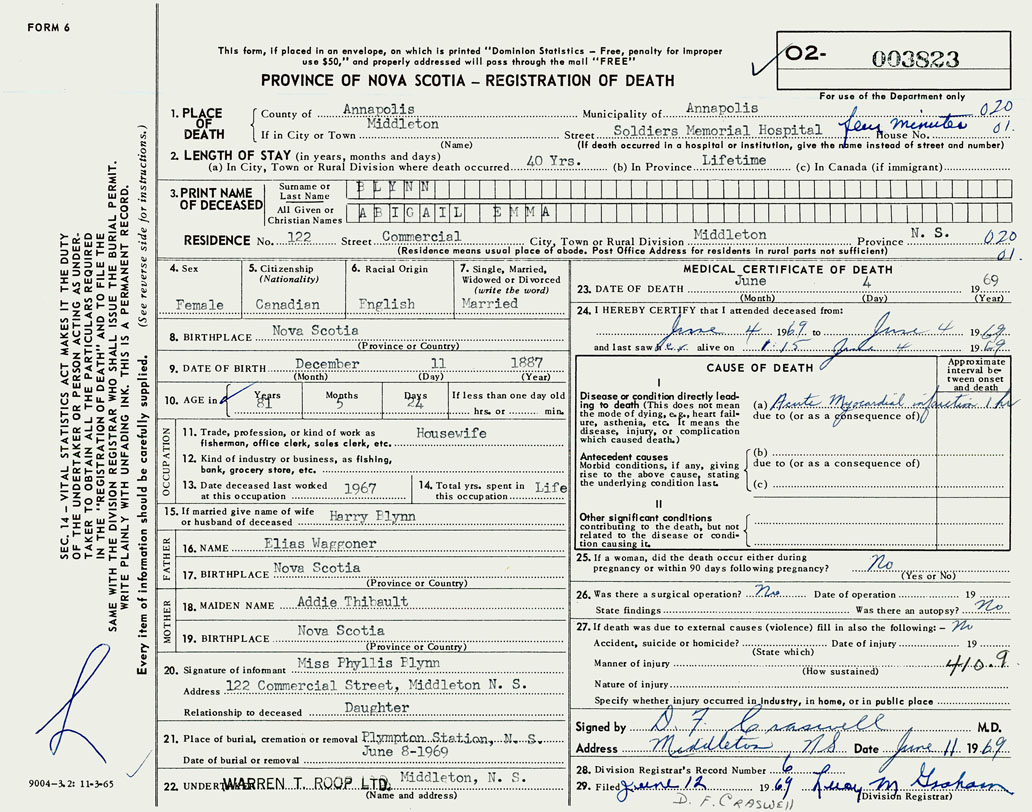 FORM 6
This form, if placed in an envelope, on which is printed "Dominion Statistics – Free, penalty for improper
use $50," and properly addressed will pass through the mail "FREE"
PROVINCE OF NOVA SCOTIA – REGISTRATION OF DEATH
O2- 003823
For use of the Department only
1. PLACE OF DEATH
County of Annapolis Municipality of Annapolis 020
If in City or Town Middleton Street Soldiers Memorial Hospital House No. few minutes 01.
(Name) (If death occurred in a hospital or institution, give the name instead of street and number)
2. LENGTH OF STAY (in years, months and days)
(a) In City, Town or Rural Division where death occurred 40 Yrs. (b) In Province Lifetime (c) In Canada (if immigrant)
3. PRINT NAME OF DECEASED
Surname or Last Name BLYNN
All Given or Christian Names ABIGAIL EMMA
RESIDENCE No. 122 Street Commercial City, Town or Rural Division Middleton Province N. S. 020
(Residence means usual place of abode. Post Office Address for residents in rural parts not sufficient) 01.
4. Sex Female
5. Citizenship (Nationality) Canadian
6. Racial Origin English
7. Single, Married, Widowed or Divorced (write the word) Married
8. BIRTHPLACE Nova Scotia
(Province or Country)
9. DATE OF BIRTH December 11 1887
(Month) (Day) (Year)
10. AGE in Years 81 Months 5 Days 24 If less than one day old
hrs. or min.
OCCUPATION
11. Trade, profession, or kind of work as Housewife
fisherman, office clerk, sales clerk, etc.
12. Kind of industry or business, as fishing,
bank, grocery store, etc.
13. Date deceased last worked at this occupation 1967
14. Total yrs. spent in this occupation Life
15. If married give name of wife or husband of deceased Harry Plynn
FATHER
16. NAME Elias Waggoner
17. BIRTHPLACE Nova Scotia
(Province or Country)
MOTHER
18. MAIDEN NAME Addie Thibault
19. BIRTHPLACE Nova Scotia
(Province or Country)
20. Signature of informant Miss Phyllis Plynn
Address 122 Commercial Street, Middleton N. S.
Relationship to deceased Daughter
21. Place of burial, cremation or removal Plympton Station, N. S.
Date of burial or removal June 8-1969
22. UNDERTAKER WARREN T. ROOP LTD. Middleton, N. S.
(Name and address)
MEDICAL CERTIFICATE OF DEATH
23. DATE OF DEATH June 4 1969
(Month) (Day) (Year)
24. I HEREBY CERTIFY that I attended deceased from:
June 4 1969 to June 4 1969
and last saw her alive on 1:15 June 4 1969
CAUSE OF DEATH
Approximate interval be-
tween onset
and death
I
Disease or condition directly lead-
ing to death (This does not
mean the mode of dying, e.g., heart fail-
ure, asthenia, etc. It means the
disease, injury, or complication
which caused death.)
(a) Acute Myocardial infarction 1 hr
due to (or as a consequence of)
Antecedent causes
Morbid conditions, if any, giving
rise to the above cause, stating
the underlying condition last.
(b)
due to (or as a consequence of)
(c)
II
Other significant conditions
contributing to the death, but not
related to the disease or condi-
tion causing it.
25. If a woman, did the death occur either during
pregnancy or within 90 days following pregnancy? No
(Yes or No)
26. Was there a surgical operation? No Date of operation 19
State findings Was there an autopsy? No
27. If death was due to external causes (violence) fill in also the following: – No
Accident, suicide or homicide? Date of injury 19
(State which)
Manner of injury 410.9
(How sustained)
Nature of injury
Specify whether injury occurred in Industry, in home, or in public place
Signed by D. F. Craswell M.D.
Address Middleton NS Date June 11 1969
28. Division Registrar's Record Number 6
29. Filed June 12 1969 M Graham
(Division Registrar)
D. F. CRASWELL
SEC. 14 – VITAL STATISTICS ACT MAKES IT THE DUTY
OF THE UNDERTAKER OR PERSON ACTING AS UNDER-
TAKER TO OBTAIN ALL THE PARTICULARS REQUIRED
IN THE "REGISTRATION OF DEATH" AND TO FILE THE
SAME WITH THE DIVISION REGISTRAR WHO SHALL ISSUE THE BURIAL PERMIT.
WRITE PLAINLY WITH UNFADING INK. THIS IS A PERMANENT RECORD.
Every item of information should be carefully supplied. (See reverse side for instructions.)
9004-3.2: 11-3-65